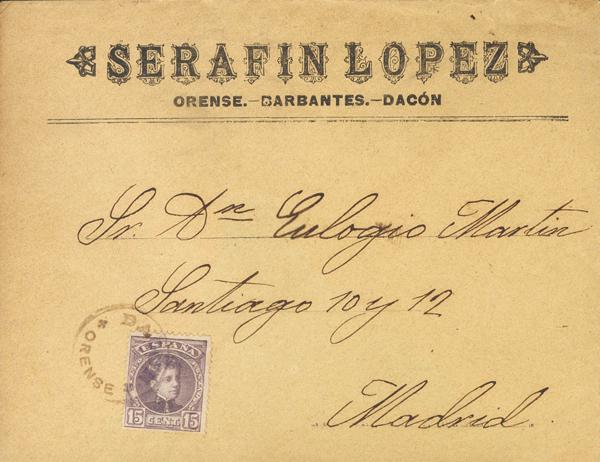 SERAFIN LOPEZ
ORENSE.-BARBANTES.-DACÓN
Sr. Dn Eulogio Martin
Santiago 10 y 12
Madrid.
BA
ORENSE
ESPAÑA
15 CENTS 15